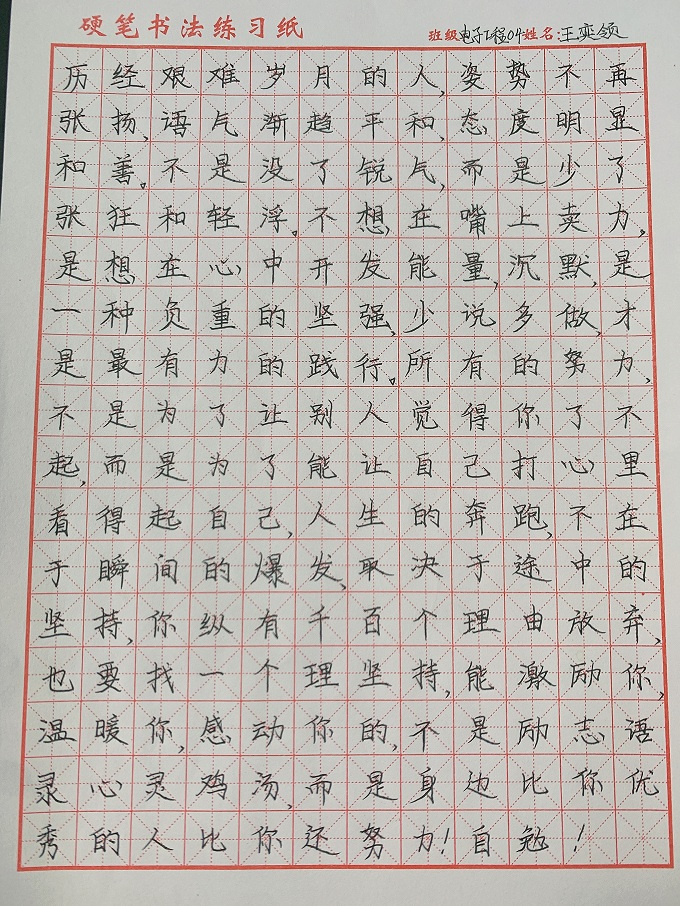 硬笔书法练习纸
班级:电子工程04 姓名:王奕领
历经艰难岁月的人,姿势不再
张扬,语气渐趋平和,态度明显
和善。不是没了锐气,而是少了
张狂和轻浮。不想在嘴上卖力,
是想在心中开发能量,沉默,是
一种负重的坚强,少说多做,才
是最有力的践行。所有的努力,
不是为了让别人觉得你了不
起,而是为了能让自己打心里
看得起自己,人生的奔跑,不在
于瞬间的爆发,取决于途中的
坚持,你纵有千百个理由放弃,
也要找一个理坚持,能激励你,
温暖你,感动你的,不是励志语
录心灵鸡汤,而是身边比你优
秀的人比你还努力!自勉!